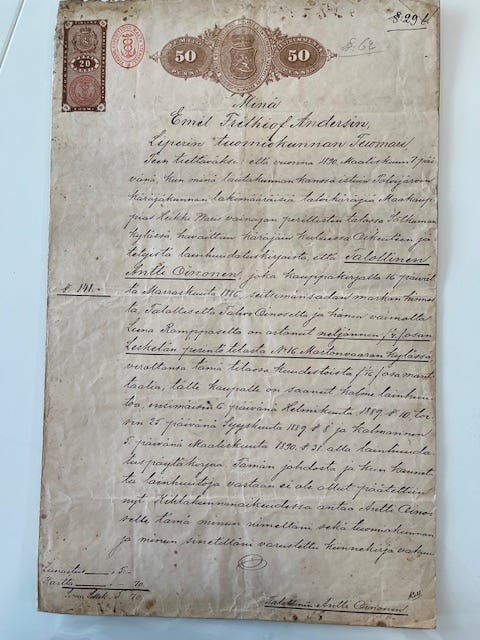 §. 29 b
50 50
20
§. 62
Minä
Emil Frithiof Andersin,
Liperin tuomiokunnan Tuomari
Teen tiettäväksi: että vuonna 1890 Maaliskuun 7 päi-
vänä, kun minä lautakunnan kanssa istuin Polvijärven
käräjäkunnan lakimääräisiä talvikäräjiä Maakaup-
pias Heikki vainajan perillisten talossa Sotkuman
kylässä, havaittiin käräjän kuluessa Oikeuteen jä-
tetyistä lainhuudatuskirjoista, että Talollinen
Antti Oinonen, joka kauppakirjalla 16 päivältä
§ 141.-
Marraskuuta 1886, seitsemänsadan markan hinnas-
ta, Talolliselta Oinoselta ja hänen vaimolta
Leena Ramppaselta on ostanut neljännen /¼/ osan
Leskelän perintö tilasta No 16 Martonvaaran kylässä
verottansa tämä tilassa kuudestoista /1/16/ osa mant-
taalia, tälle kaupalle on saanut kolme lainhuu-
toa, ensimäisen 6 päivänä Helmikuuta 1889 § 10, toi-
sen 25 päivänä Syyskuuta 1889 § 8 ja kolmannen
5 päivänä Maaliskuuta 1890 § 31 alla lainhuuda-
tuspöytäkirjaa. Tämän johdosta ja kun
lainhuutoja vastaan ei ole ollut päätettiin
nyt Kihlakunnanoikeudessa antaa Antti Oino-
selle tämä minun nimelläni sekä tuomiokunnan
ja minun sinetilläni varustettu kiinnekirja
Lunastus 5:-
Kartta -:70.
Smk 5:70
Talollinen Antti Oinonen